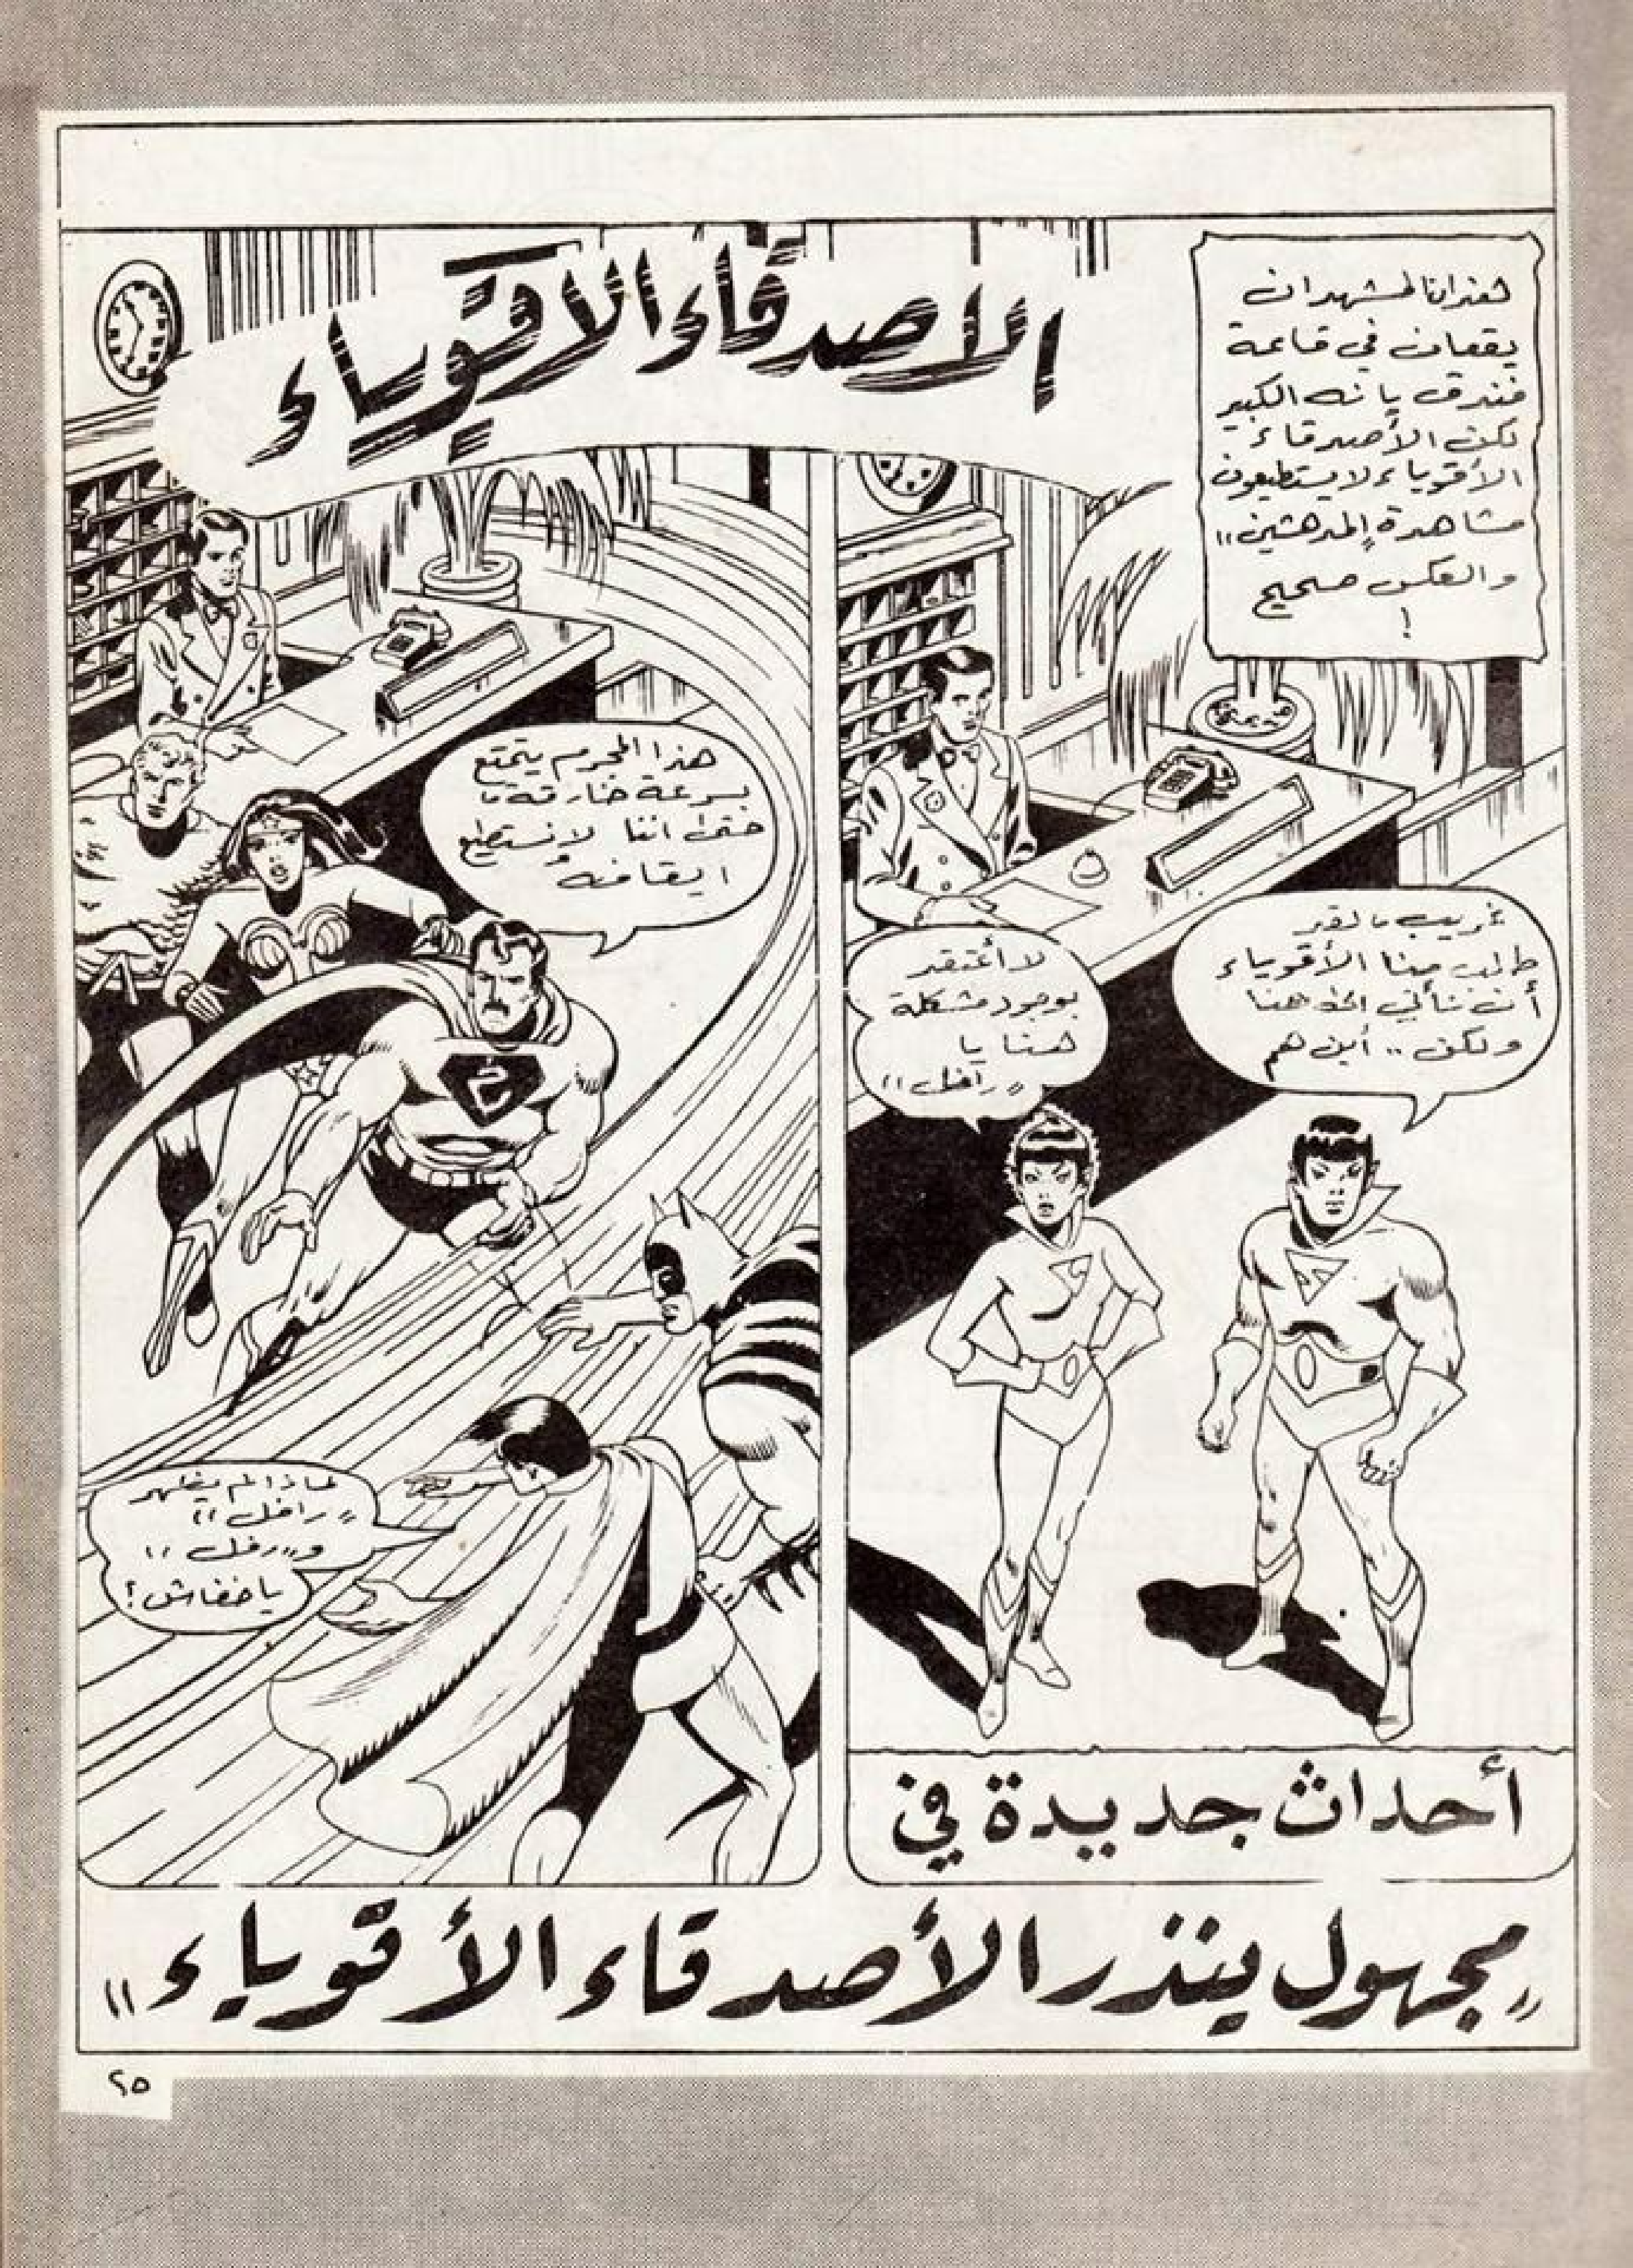 الأصدقاء الأقوياء
هذان المشهدان
يقعان في قاعة
فندق يانه الكبير
لكن الأصدقاء
الأقوياء لا يستطيعون
مشاهدة المدهشين"
والعكس صحيح
!
غريب ما لقد
طلب منا الأقوياء
أن نأتي الى هنا
ولكن .. أين هم
لا أعتقد
بوجود مشكلة
هنا يا
"رافل"
هذا المجرم يتمتع
بسرعة خارقة ما
حتى اننا لا نستطيع
ايقافه
لماذا لم يظهر
"رافل"
و"رفل"
يا خفاش؟
أحداث جديدة في
"مجهول ينذر الأصدقاء الأقوياء"
٢٥